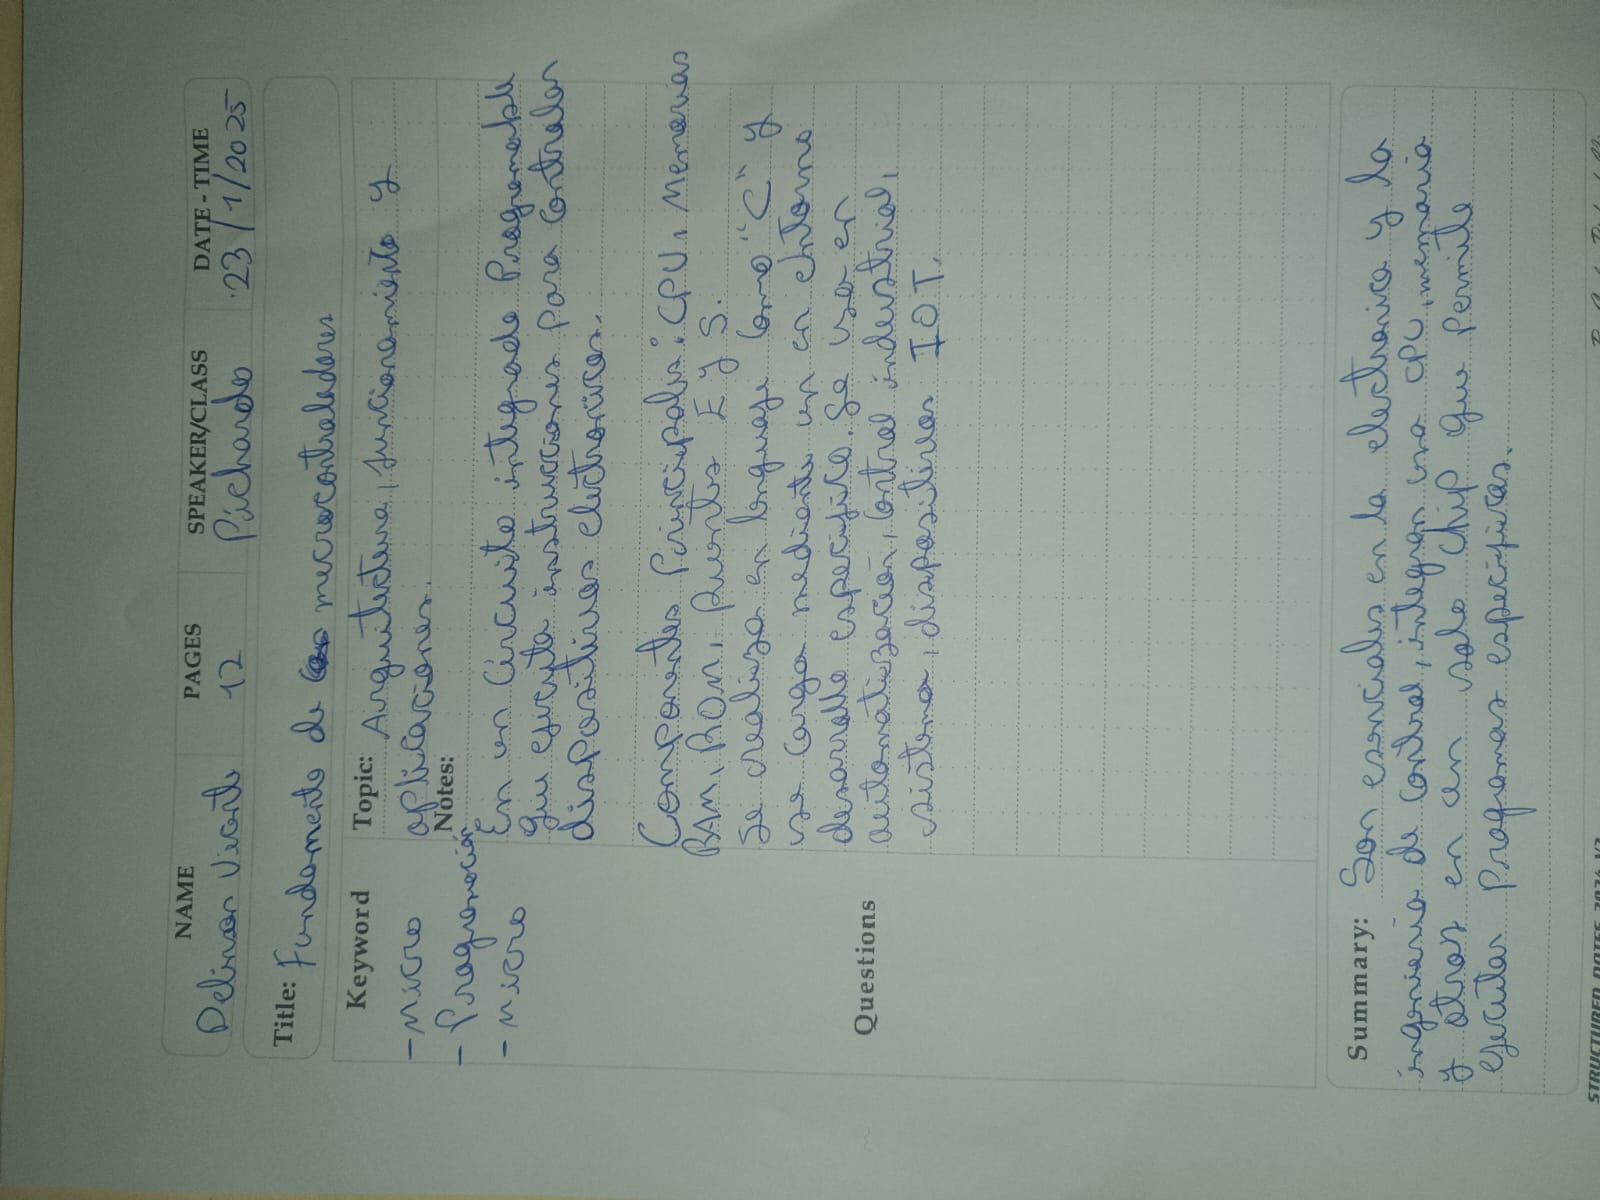 NAME PAGES SPEAKER/CLASS DATE - TIME
Delinson Vicente 12 Pichardo 23/1/2025
Title: Fundamento de microcontroladores
Keyword
- micro
- Programación
- micro
Topic: Arquitectura, funcionamiento y
aplicaciones.
Notes:
Es un Circuito integrado Programable
que ejecuta instrucciones para Controlar
dispositivos electronicos.
Componentes Principales: CPU, Memorias
RAM, ROM, Puertos E y S.
Se realiza en lenguaje Como "C" y
se carga mediante un en entorno
desarrollo especifico. Se usa en
automatización, Control industrial,
sistema, dispositivos IOT.
Questions
Summary: Son esenciales en la electronica y la
ingenieria de Control, integran una CPU, memoria
y otros en un solo chip que Permite
ejecutar Programas especificos.
STRUCTURED NOTES